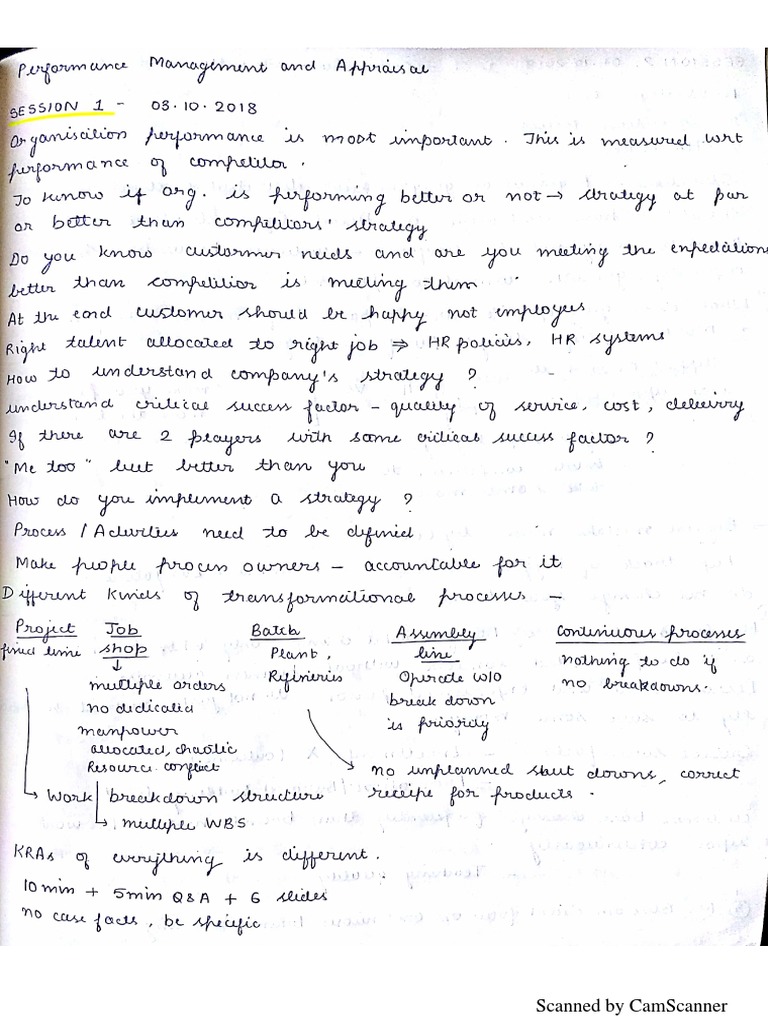 Performance Management and Appraisal
SESSION 1 - 03.10.2018
Organisation performance is most important. This is measured wrt
performance of competitor.
To know if org. is performing better or not → strategy at par
or better than competitors' strategy
Do you know customer needs and are you meeting the expectations
better than competitior is meeting them
At the end customer should be happy not employees
Right talent allocated to right job ⇒ HR policies, HR systems
How to understand company's strategy ?
understand critical success factor - quality of service, cost, delivery
If there are 2 players with same critical success factor ?
"Me too" but better than you
How do you implement a strategy ?
Process / Activities need to be defined
Make people process owners - accountable for it
Different kinds of transformational processes -
Project Job Batch Assembly Continuous processes
fixed time shop Plant, line nothing to do if
↓ Refineries Operate w/o no breakdowns.
multiple orders break down
no dedicated is priority
manpower
allocated, chaotic
Resource conflict no unplanned shut downs, correct
→ Work breakdown structure receipe for products.
→ multiple WBS
KRAs of everything is different.
10 min + 5 min Q & A + 6 slides
no case facts, be specific
Scanned by CamScanner